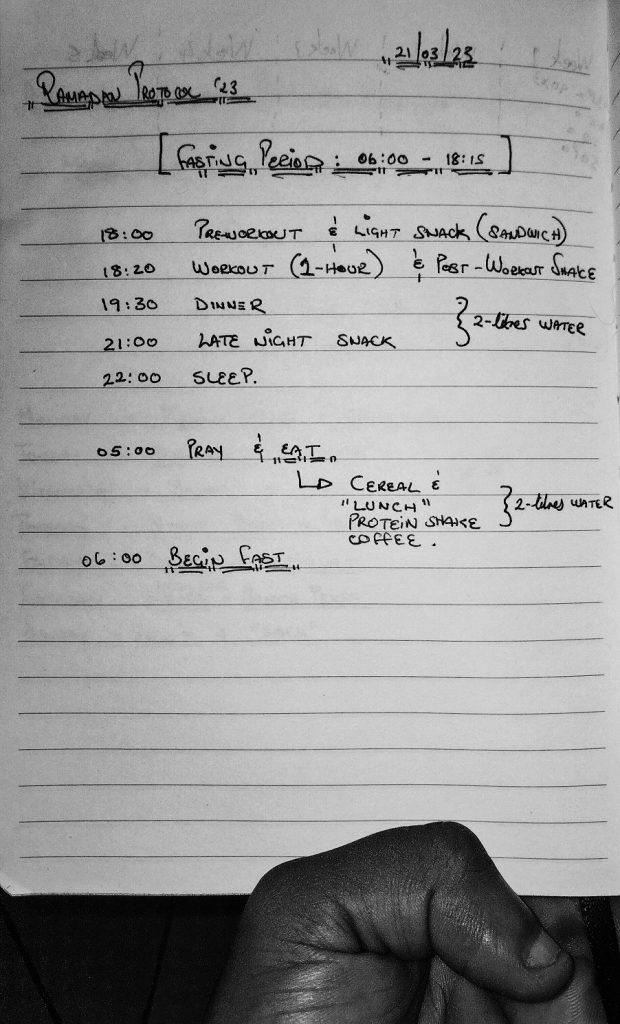 21/03/23
RAMADAN PROTOCOL '23
[FASTING PERIOD: 06:00 - 18:15]
18:00 PREWORKOUT & LIGHT SNACK (SANDWICH)
18:20 WORKOUT (1-HOUR) & POST-WORKOUT SHAKE
19:30 DINNER
2-litres WATER
21:00 LATE NIGHT SNACK
22:00 SLEEP.
05:00 PRAY & "EAT"
CEREAL &
"LUNCH"
2-litres WATER
PROTEIN SHAKE
COFFEE.
06:00 "BEGIN FAST"